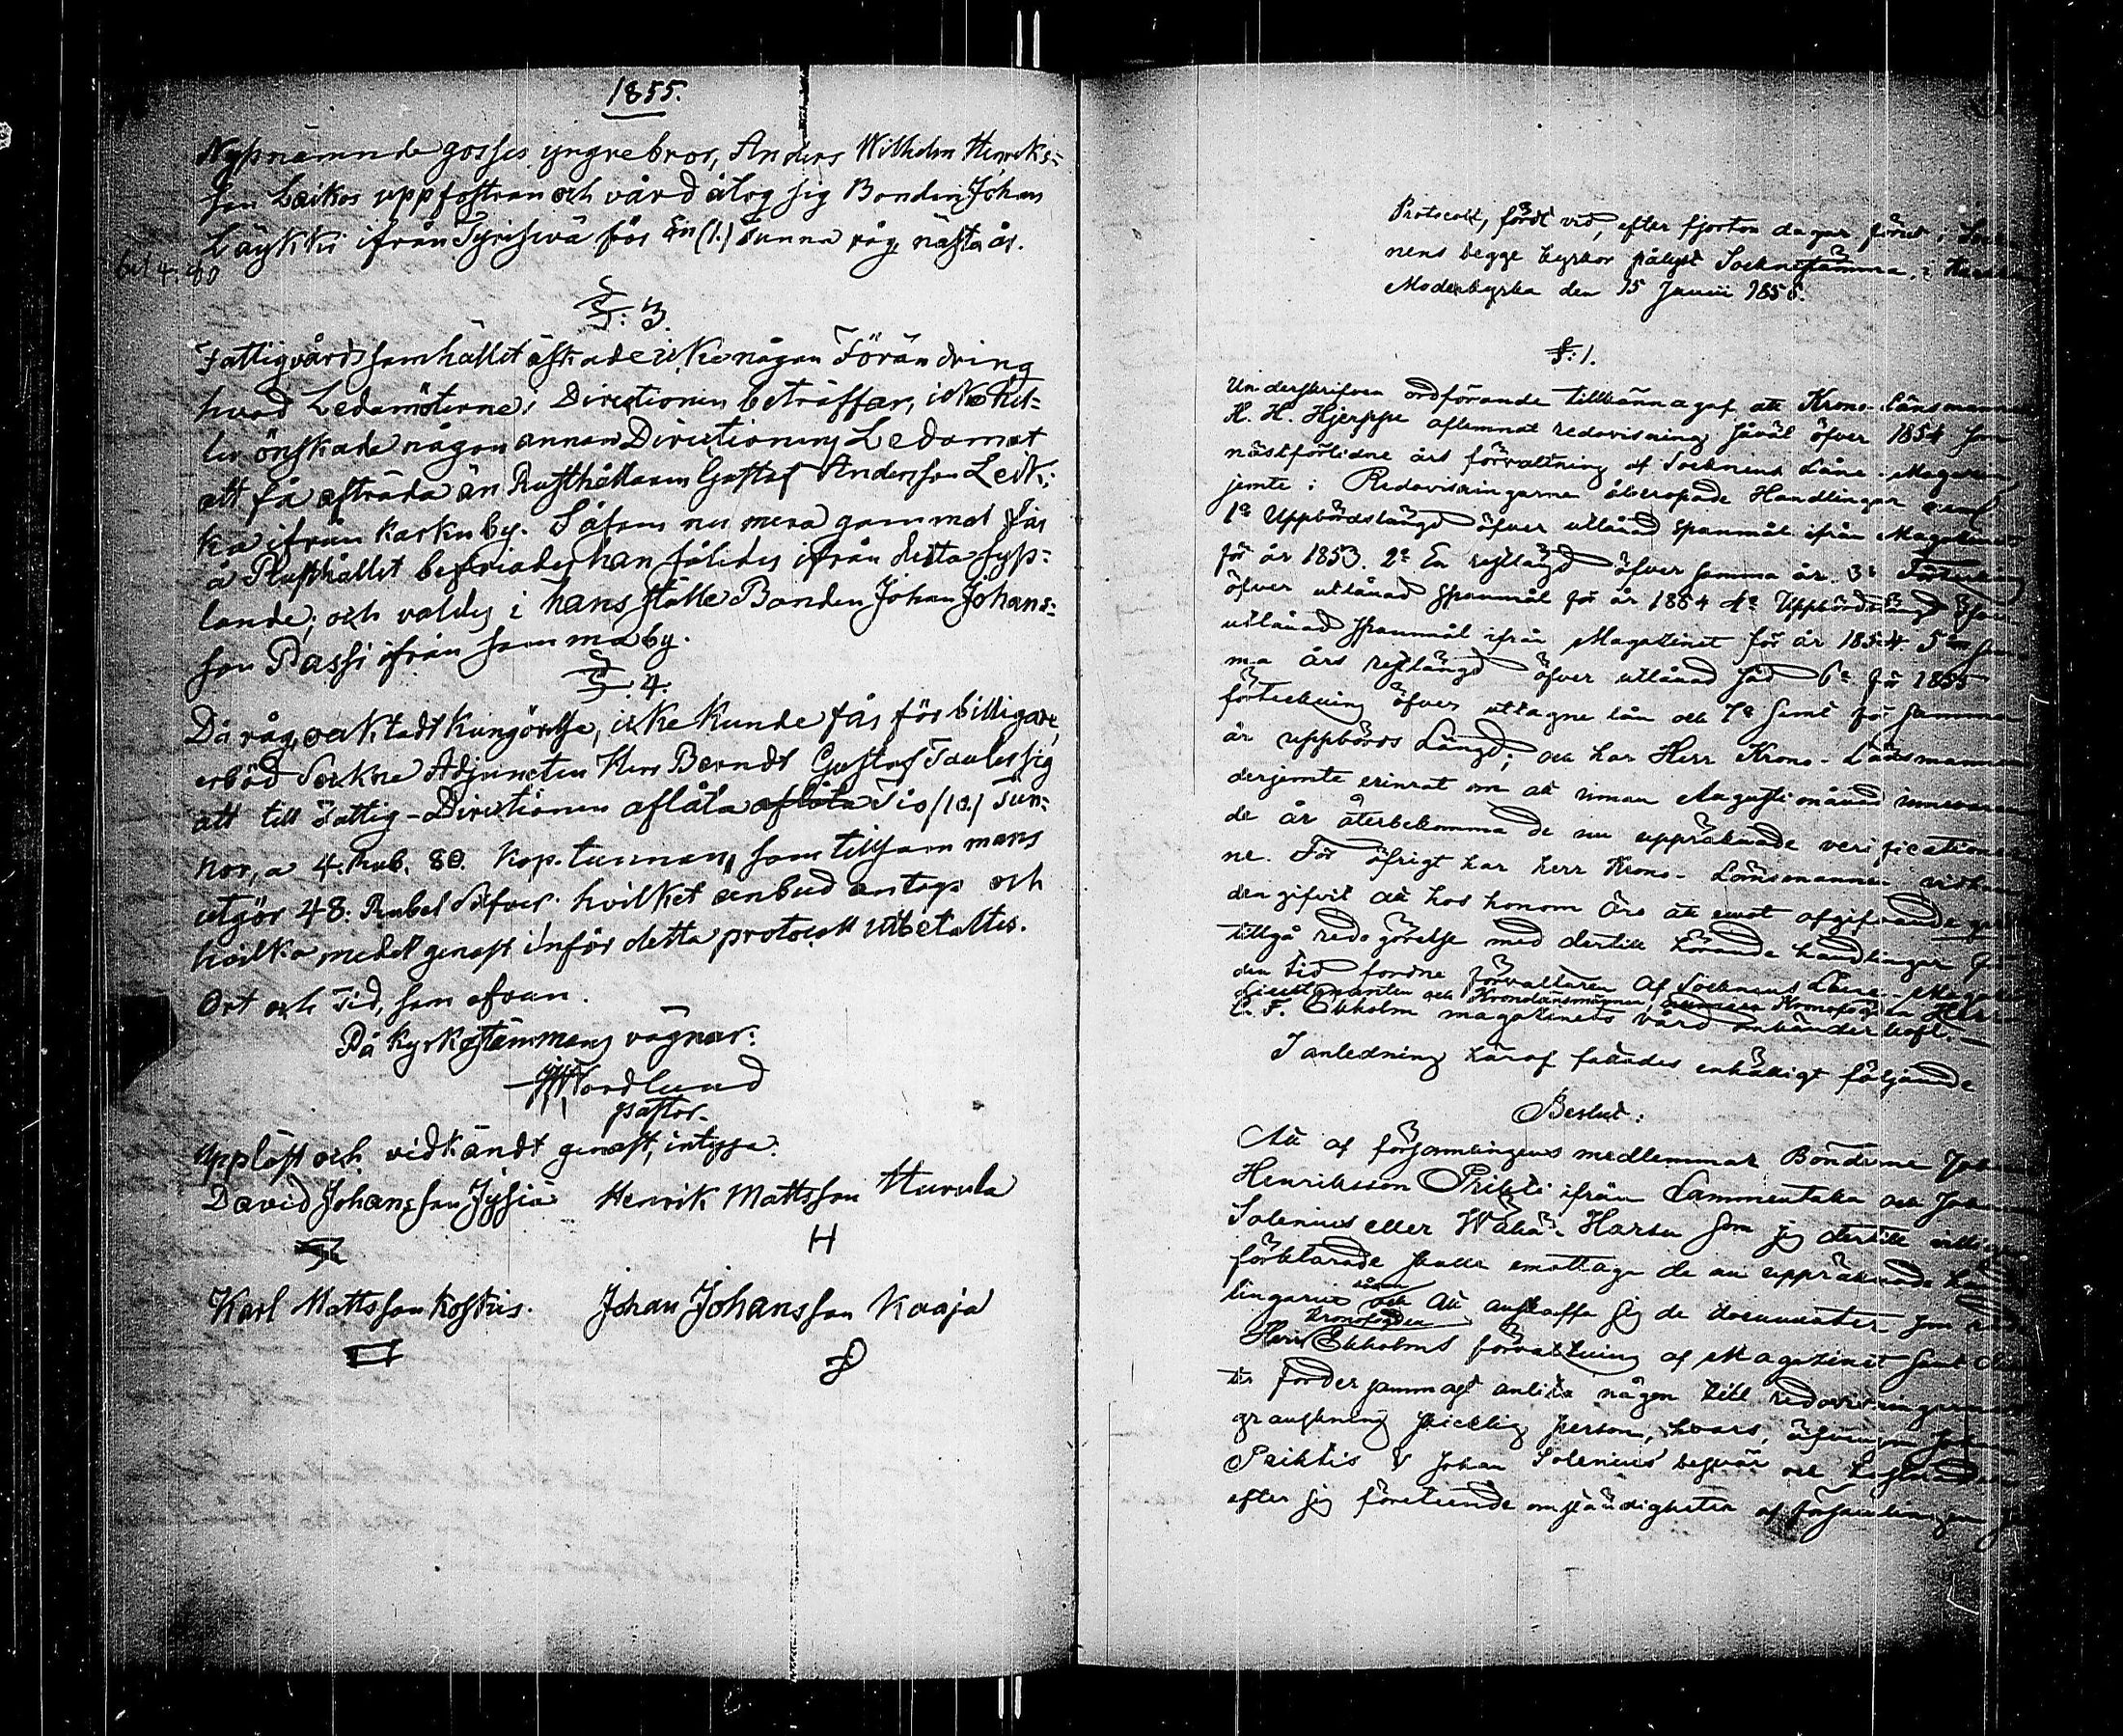 1855.
Nyssnämnde gosses yngre bror, Anders Wilhelm Henriks=
son Leikos uppfostran och vård åtog sig Bonden Johan
Läykki ifrån Tyrisevä för En (1.) Tunna råg nästa år.
bet 4. 80
§: 3.
Fattigvårdssamhället äskade icke någon Förändring
hvad Ledamöterne i Directionen beträffar, icke hel=
ler önskade någon annan Directionens Ledamot
att få afträda än Rusthållaren Gustaf Andersson Leik:
ka ifrån Karkuby. Såsom nu mera gammal får
å Rusthållet befriades han således ifrån detta syss=
lande; och valdes i hans ställe Bonden Johan Johans=
son Passi ifrån samma by.
§. 4.
Då råg, verkstadt kungörelse, icke kunde fås för billigare,
erböd Sockne Adjuncten Herr Berndt Gustaf Taules sig
att till Fattig-Directionen aflåta aflåta Tio (10.) Tun=
nor, a 4. Rub. 80. Kop. tunnan, som tillsammans
utgör 48: Rubel Silfver. hvilket anbud antogs och
hvilka medel genast inför detta protocoll utbetaltes.
Ort och Tid, som ofvan.
På Kyrkostämmans vägnar:
Nordlund
pastor.
Uppläst och vidkändt genast, intyga:
David Johansson Jysiä Henrik Mattsson Hurula
H
Karl Mattsson Koskis. Johan Johansson Kaaja
Protocoll, fördt vid, efter fjorton dagar förut i Sock
nens begge kyrkor pålyst Sockne stämma, i
Moderkyrka den 15 Junii 1856.
§: 1.
Underskrifven ordförande tillkännagaf att Krono-Länsmannen
K. H. Hjerppe aflemnat redovisning såväl öfver 1854 som
nästförlidne års förvaltning af Socknens Låne-Magasin,
jemte i Redovisningarne åberopade Handlingar
1o Uppbördslängd öfver utlånad spanmål ifrån Magasinet
för år 1853. 2o En restlängd öfver samma år. 3o Förteckning
öfver utlånad spanmål för år 1854 4o Uppbördslängd öfver
utlånad spanmål ifrån Magasinet för år 1854. 5o sam
ma års restlängd öfver utlånad säd 6o för 1855
förteckning öfver uttagne lån och 7o samt för samma
år uppbörds Längd; och har Herr Krono-Länsmannen
derjemte erinrat om att innan Augusti månad innevaran
de år återbekomma de nu uppräknade verificationer
ne. För öfrigt har herr Krono-Länsmannen vid
den gifvit att hos honom äro att emot afgifvande
tillgå redogörelse med dertill hörande handlingar för
den tid fordne förvaltaren af Socknens Låne-Magasin
Lieutenanten och Kronolänsmannen numera Kronofogden Herr
C. F. Ekholm magasinets vård omhänderhaft. —
I anledning häraf fattades enhälligt följande
Beslut:
Att af församlingens medlemmar Bönderne Johan
Henriksson Prihti ifrån Lammentaka och Johan
Solenius eller Wähä-Harsu som sig dertill villige
förklarade skulle emottaga de nu uppräknade hand
lingarne och att anskaffa sig de documenter som
Kronofogden
Herr Ekholms förvaltning af Magasinet samt
fordersammast anlita någon till redovisningarnes
granskning skicklig person, hvars, äfvensom Johan
Prihtis & Johan Solenius besvär och kostnader
efter sig företeende omständigheter af församlingen